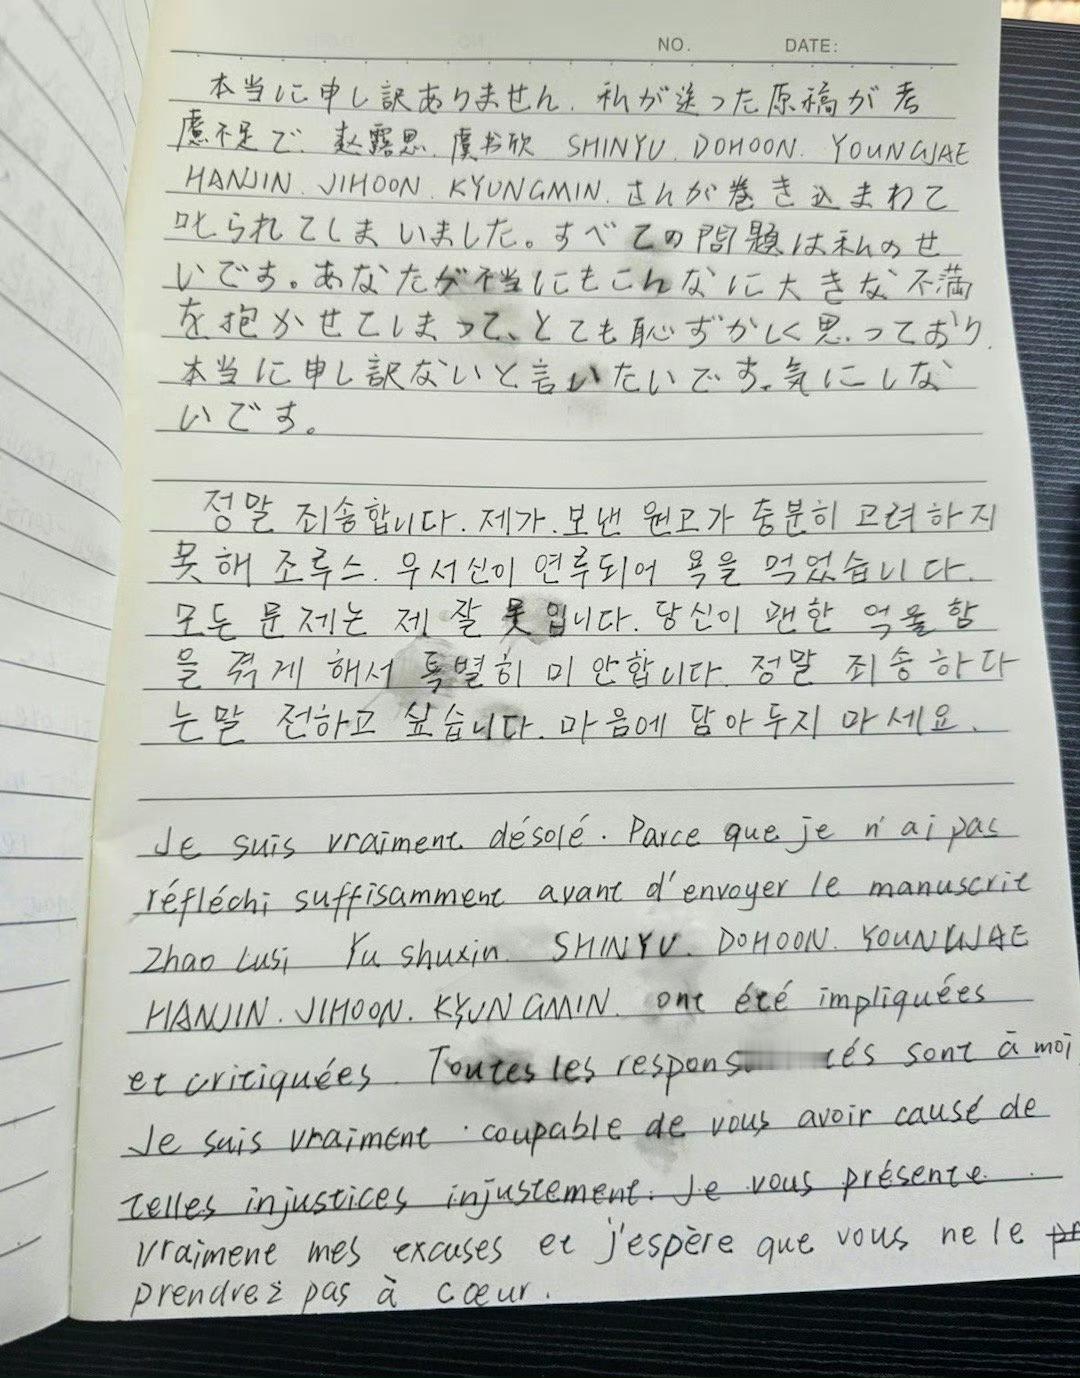 NO. DATE:
本当に申し訳ありません. 私が送った原稿が考
慮不足で. 赵露思. 虞书欣 SHINYU. DOHOON. YOUNGJAE
HANJIN. JIHOON. KYUNGMIN. さんが巻き込まわて
叱られてしまいました。すべての問題は私のせ
いです。あなたが不当にもこんなに大きな不満
を抱かせてしまって、とても恥ずかしく思っており.
本当に申し訳ないと言いたいです。気にしな
いです。
정말 죄송합니다. 제가 보낸 원고가 충분히 고려하지
못해 조루스. 우서신이 연루되어 욕을 먹었습니다.
모든 문제는 제 잘못입니다. 당신이 괜한 억울함
을 겪게 해서 특별히 미안합니다. 정말 죄송하다
는말 전하고 싶습니다. 마음에 담아두지 마세요.
Je suis vraiment désolé. Parce que je n'ai pas
réfléchi suffisamment avant d'envoyer le manuscrit
Zhao Lusi Yu shuxin. SHINYU. DOHOON. YOUNGJAE
HANJIN. JIHOON. KYUNGMIN. ont été impliquées
et critiquées. Toutes les sont à moi
Je suis vraiment coupable de vous avoir causé de
telles injustices injustement. Je vous présente
vraiment mes excuses et j'espère que vous ne le
prendrez pas à cœur.